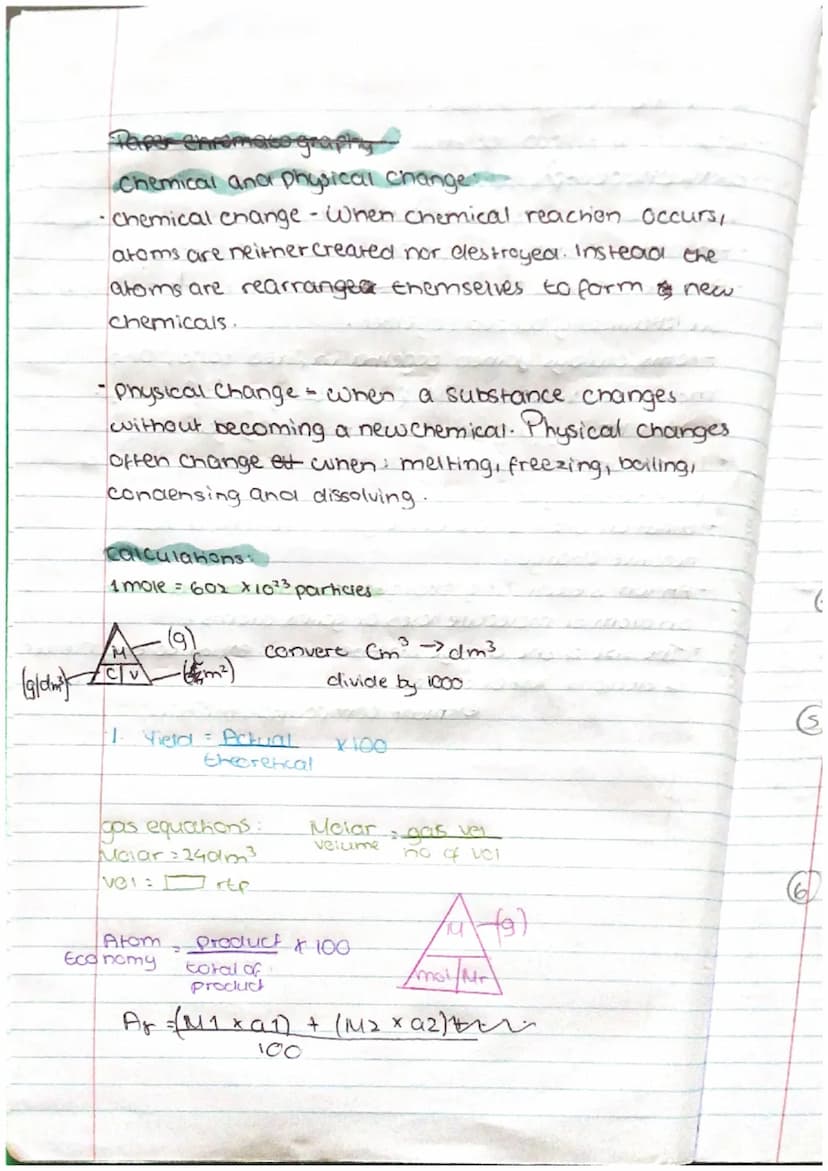 Paper chromatography
Chemical and physical change:
· Chemical change - When chemical reaction occurs,
atoms are neither created nor destroyed. Instead the
atoms are rearranged themselves to form new
chemicals.
- Physical Change - when a substance changes
without becoming a new chemical. Physical changes
often change when: melting, freezing, boiling,
condensing and dissolving.
Calculations:
1 mole = 602 x 10²³ particles
M (g)
C V (g/dm³)
convert cm³ → dm³
divide by 1000
1. Yield = Actual x 100
theoretical
gas equations: Molar volume = gas vol
no of vol
Molar = 24dm³
vol = rtp
Atom Economy = product x 100
total of product
M (g)
mol Mr
Ar = (M1 x a1) + (M2 x a2)
100
(5
(6)